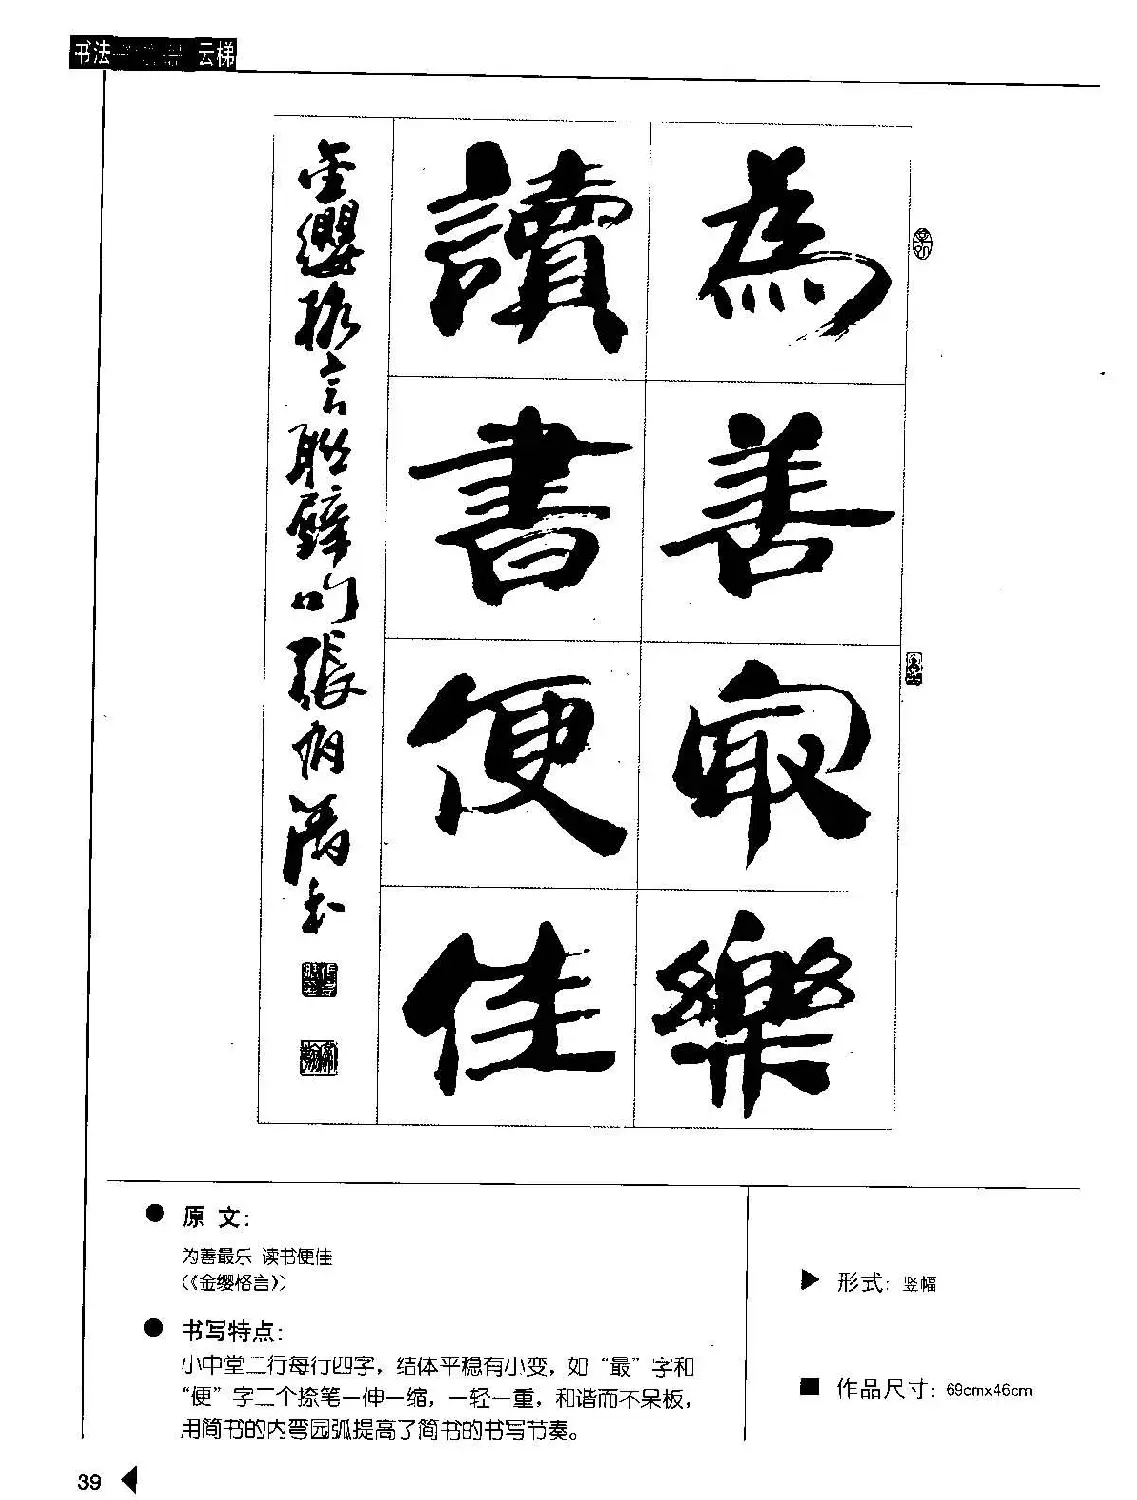 书法 云梯
為善最樂
讀書便佳
金纓格言聯璧句張有清書
● 原 文：
为善最乐 读书便佳
（《金缨格言》）
● 书写特点：
小中堂二行每行四字，结体平稳有小变，如“最”字和
“便”字二个捺笔一伸一缩，一轻一重，和谐而不呆板，
用简书的内弯园弧提高了简书的书写节奏。
▶ 形式：竖幅
■ 作品尺寸：69cmx46cm
39